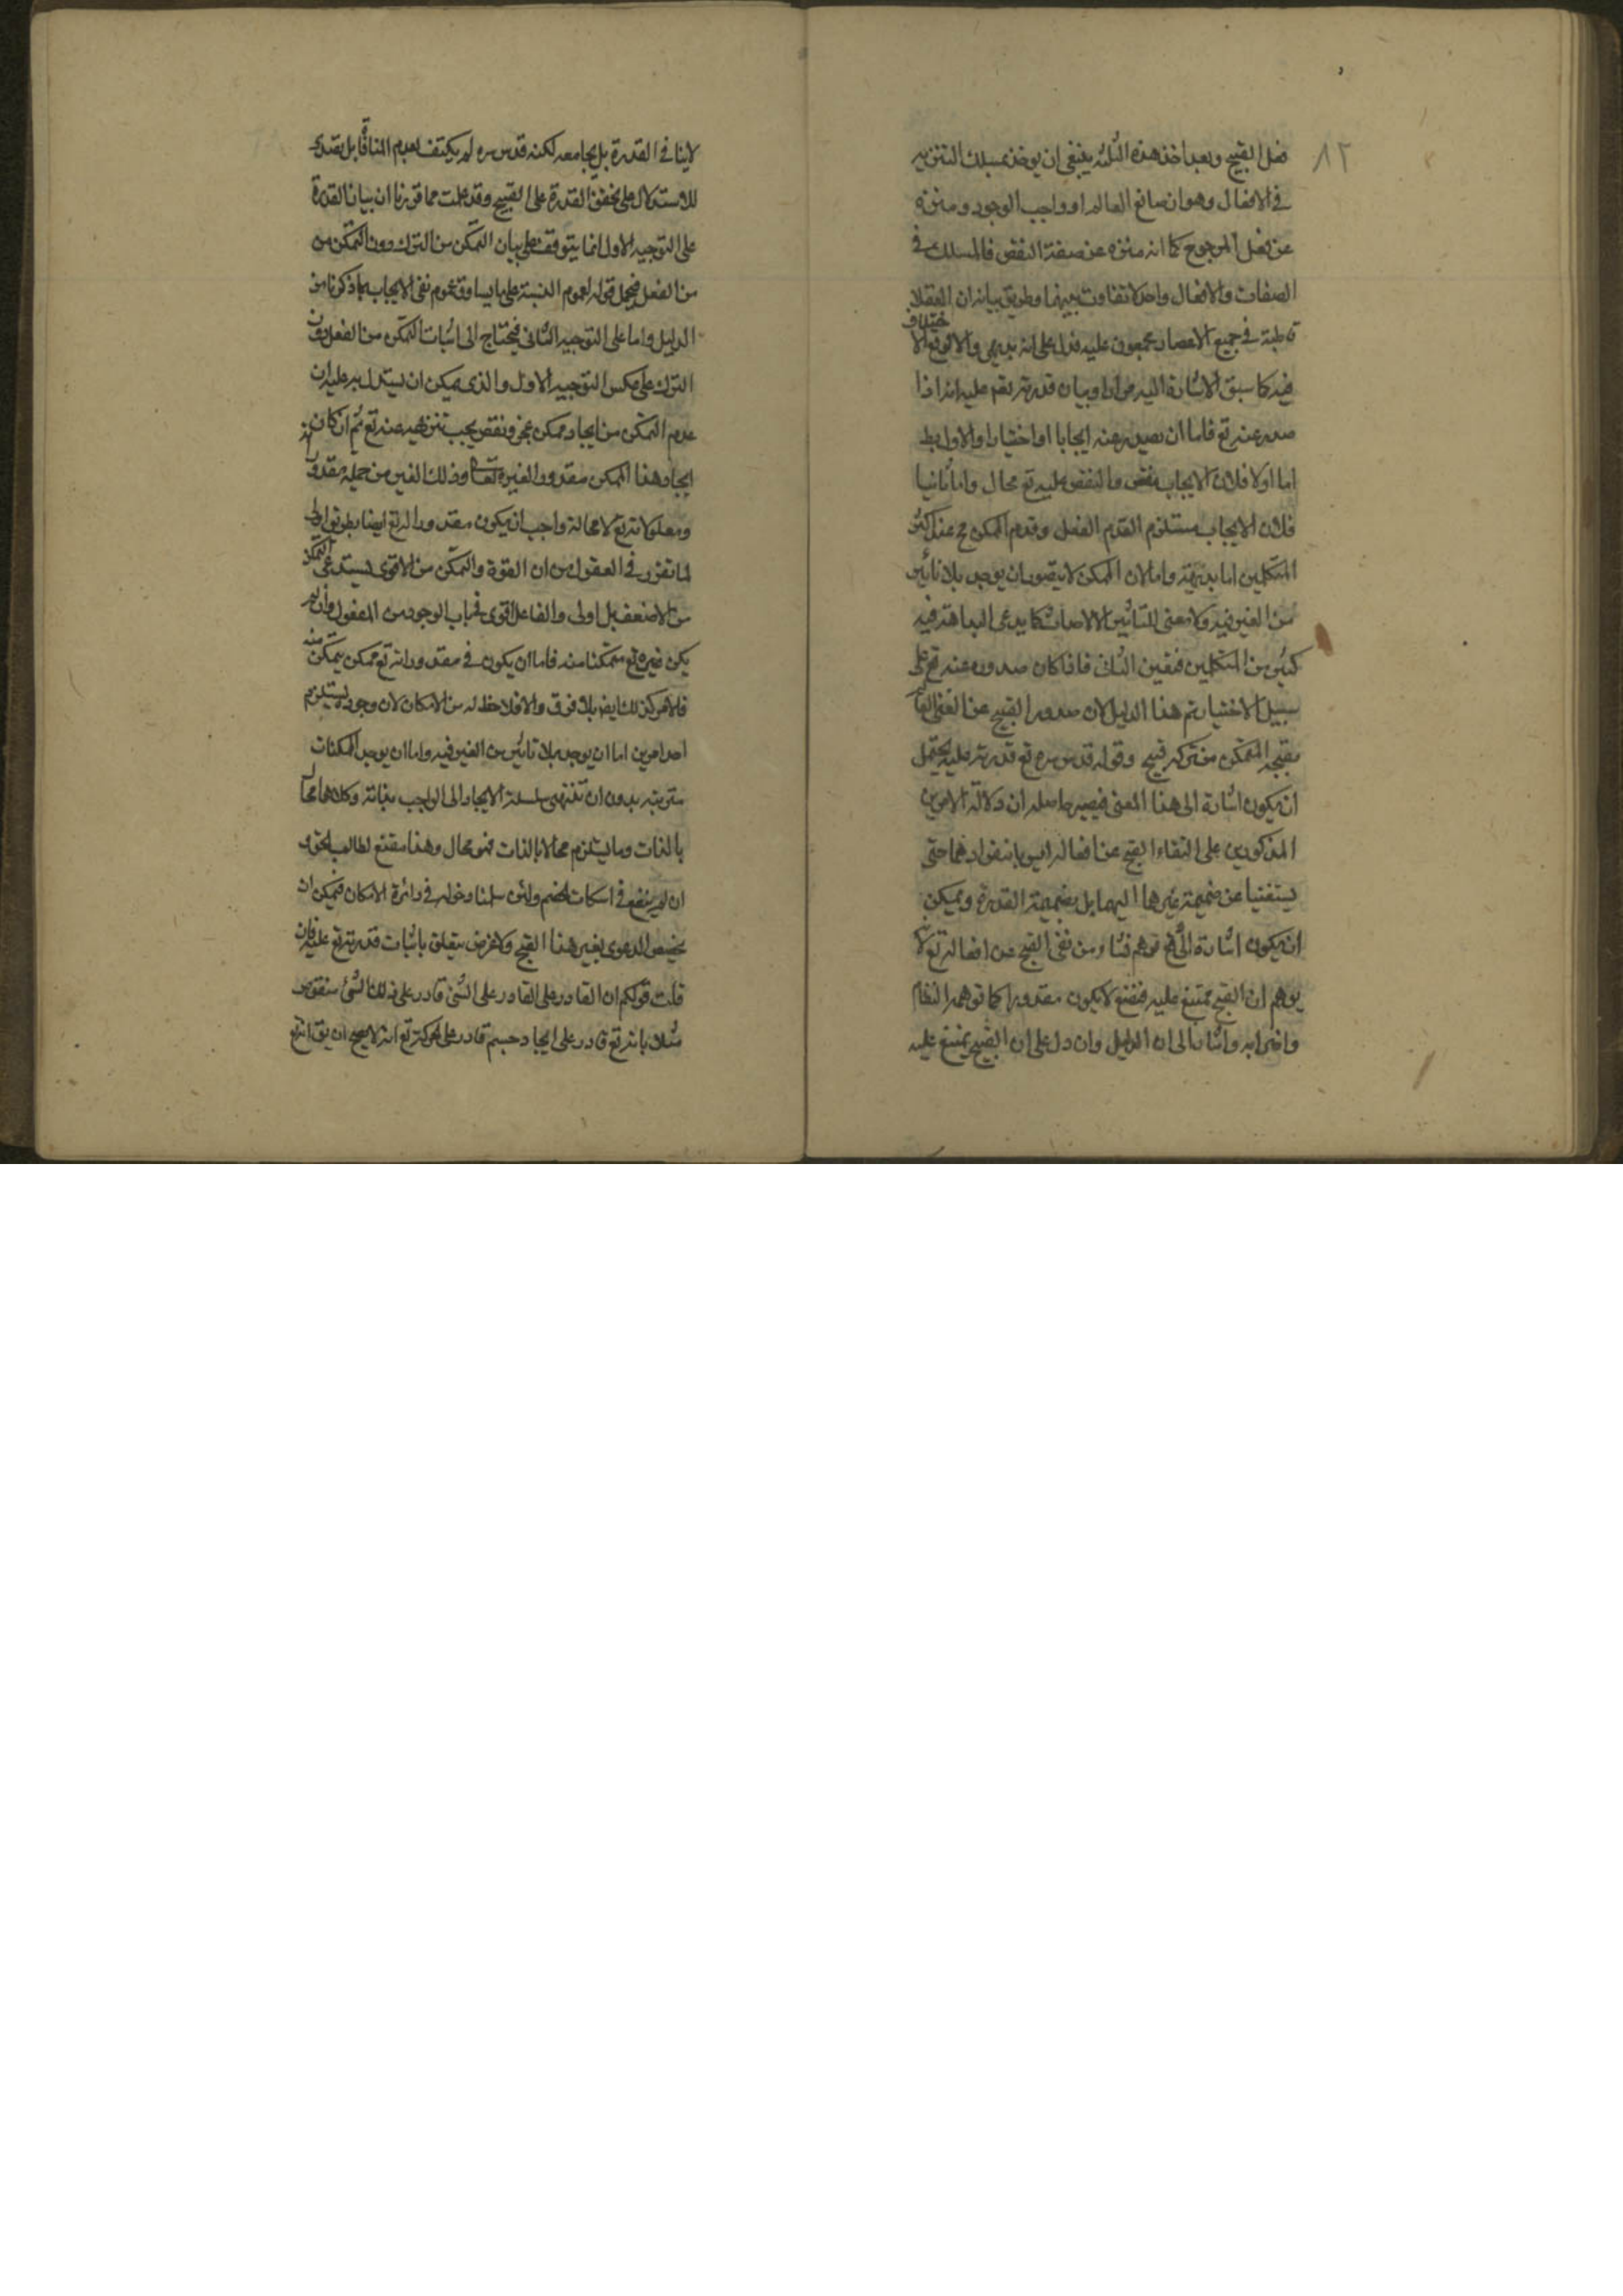 ٨٢
فعل القبيح وبعد اخذ هذه الثلثة ينبغي ان يوخذ مسلك التنزيه
في الافعال وهو ان صانع العالم او واجب الوجود ومنزه
عن فعل المرجوح كما انه منزه عن صفة النقص فالمسلك في
الصفات والافعال واحد لا تفاوت بينهما وطريق بيانه ان العقلاء
قاطبة في جميع الاعصار مجمعون عليه فدل على انه بديهي والا لوقع الاختلاف
فيه كما سبق الاشارة اليه مرارا وبيان قدرته تقم عليه انه اذا
صدر عنه تع فاما ان يصدر عنه ايجابا او اختيارا والاول بط
اما اولا فلان الايجاب نقص والنقص عليه تع محال واما ثانيا
فلان الايجاب مستلزم القدم الفعل وقدم الممكن مح عند اكثر
المتكلمين اما بديهة واما لان الممكن لا يتصور ان يوجد بلا تاثير
من الغير فيه ولا معنى للتاثير الا الاحداث كما يدعى البداهة فيه
كثير من المتكلمين فتعين الثاني فاذا كان صدوره عنه تع على
سبيل الاختيار تم هذا الدليل لان صدور القبيح عن الغني العالم
بقبحه المتمكن من تركه قبيح وقوله قدس سره مع قدرته عليه يحتمل
ان يكون اشارة الى هذا المعنى فيصير حاصله ان دلالة الامرين
المذكورين على انتفاء القبح عن افعاله ليس بانفرادهما حتى
يستغنيا عن ضميمة غيرهما اليهما بل بضميمة القدرة ويمكن
ان يكون اشارة الى دفع توهم نشاء من نفي القبح عن افعاله تع لانه
يوهم ان القبح ممتنع عليه فيمتنع لا يكون مقدورا كما توهمه النظام
واضرابه واشار الى ان الدليل وان دل على ان القبيح يمتنع عليه
لاينافي القدرة بل يجامعه لكنه قدس سره لم يكتف بعدم المنافاة بل تصدى
للاستدلال على تحقق القدرة على القبيح وقد علمت مما قررنا ان بيان القدرة
على التوجيه الاول انما يتوقف على بيان التمكن من الترك دون التمكن من
من الفعل فيحمل قوله لعموم النسبة على ما يساوق عموم نفي الايجاب بما ذكرنا من
الدليل واما على التوجيه الثاني فيحتاج الى اثبات التمكن من الفعل دون
الترك على عكس التوجيه الاول والذي يمكن ان يستدل به عليه ان
عدم التمكن من ايجاد ممكن عجز ونقص يجب تنزيهه عنه تع ثم ان كان
ايجاد هذا الممكن مقدور الغيره تعالى وذلك الغير من جملة مقدور
ومعلولاته تع لا محالة واجب ان يكون مقدورا له تع ايضا بطريق اولى
لما تقرر في العقول من ان القوة والتمكن من الاقوى يستدعي التمكن
من الاضعف بل اولى والفاعل اقوى في باب الوجود من المفعول وان لم
يكن غيره تع متمكنا منه فاما ان يكون في مقدوراته تع ممكن يتمكن منه
فلامر كذلك ايضا بلا فرق والا فلا حظ له من الامكان لان وجوده يستلزم
احد امرين اما ان يوجد بلا تاثير من الغير فيه واما ان يوجد الممكنات
مترتبة بدون ان تنتهي سلسلة الايجاد الى الواجب بذاته وكلاهما محال
بالذات وما يستلزم محالا بالذات فهو محال وهذا مقنع لطالب الحق و
ان لم ينفع في اسكات الخصم ولئن سلمنا دخوله في دائرة الامكان فيمكن ان
يخصص الدعوى بغير هذا القبح ولا غرض يتعلق باثبات قدرته تع عليه فان
قلت قولكم ان القادر على القادر على الشئ قادر على ذلك الشئ منقوض
مثلا بانه تع قادر على ايجاد جسم قادر على الحركة مع انه لا يصح ان يق انه تع